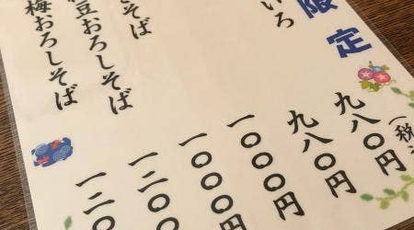 限定
いろ
そば
豆おろしそば
梅おろしそば
（税
九八〇円
九八〇円
一〇〇〇円
一〇〇〇円
一二〇〇
一二〇